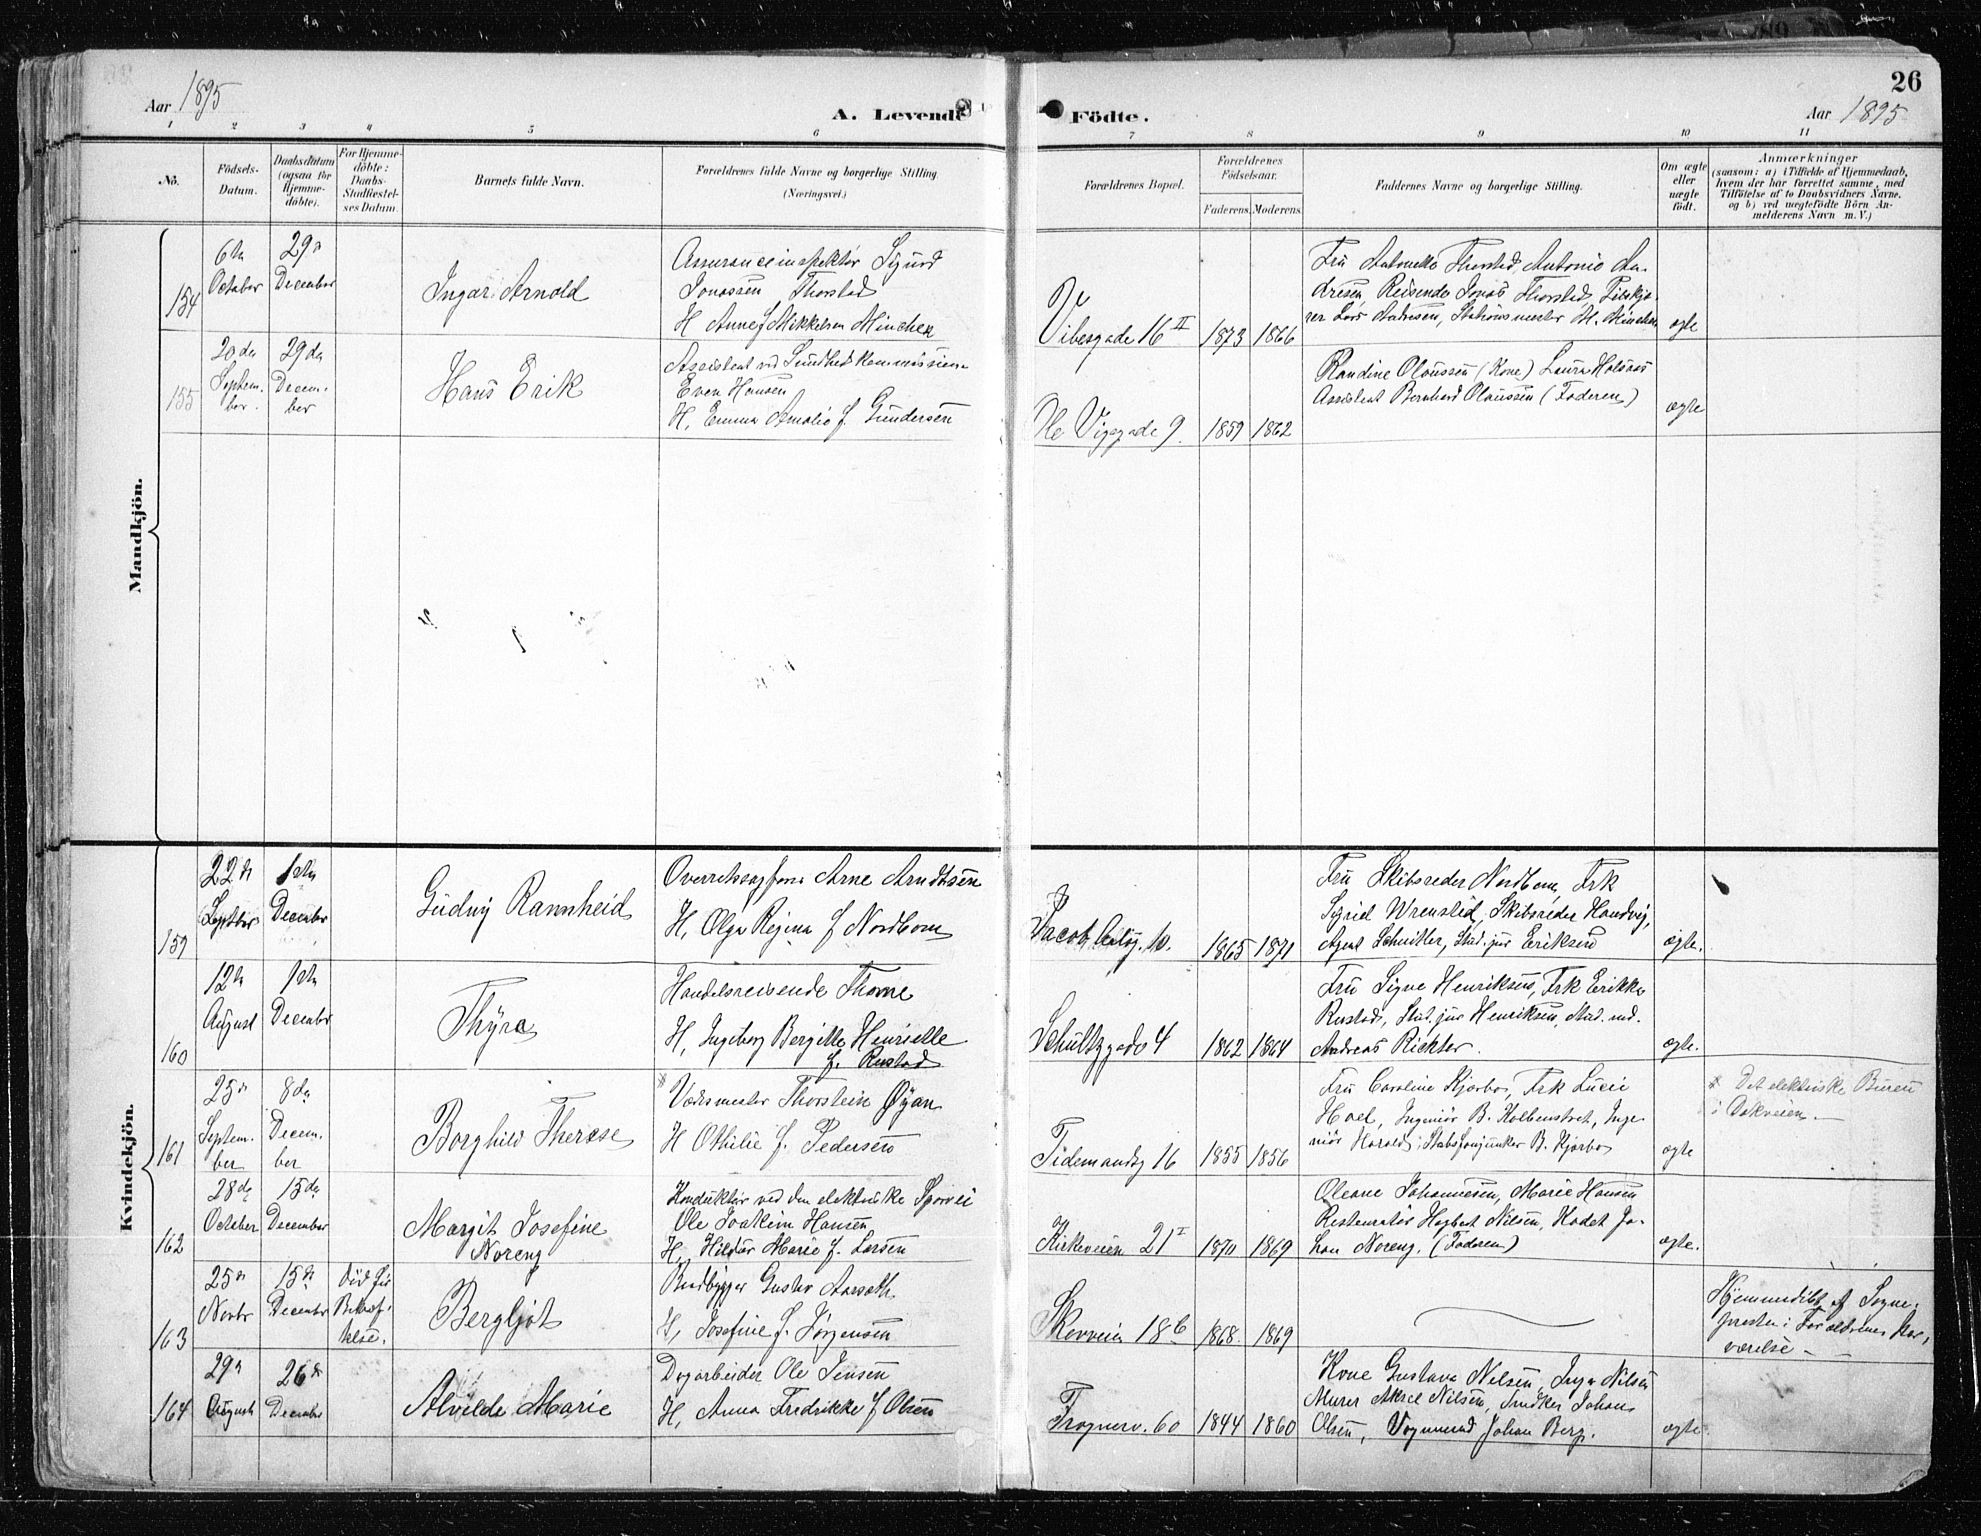 26
Aar 1895
A. Levende Födte.
Aar 1895
1 2 3 4 5 6 7 8 9 10 11
No.
Födsels-
Datum.
Daabsdatum
(ogsaa for
Hjemme-
döbte).
For Hjemme-
döbte:
Daabs-
Stadfæstel-
ses Datum.
Barnets fulde Navn.
Forældrenes fulde Navne og borgerlige Stilling
(Næringsvei.)
Forældrenes Bopæl.
Forældrenes
Födselsaar.
Faderens. Moderens.
Faddernes Navne og borgerlige Stilling.
Om ægte
eller
uægte
födt.
Anmærkninger
(saasom: a) i Tilfælde af Hjemmedaab,
hvem der har forrettet samme, med
Tilföielse af to Daabsvidners Navne.
og b) ved uægtefödte Börn An-
melderens Navn m. V.)
Mandkjön.
154
6te
October
29de
December
Ingar Arnold
Assuranceinspektør Sigurd
Jonassen Thorstad
H Anne f Mikkelsen München
Vibesgade 16 II
1873 1866
Fru Antonette Thorstad, Antonio An-
dresen, Reisende Jonas Thorstad,
Lars Andresen, Stationsmester M. München
ægte
155
20de
Septem-
ber.
29de
Decem-
ber
Hans Erik
Assistent ved Sundhedskommissionen
Even Hansen
H, Emma Amalie f. Gundersen
Ole Vigsgade 9.
1859 1862
Randine Olaussen (Kone) Laura
Assistent Bernhard Olaussen (Faderen)
ægte
Kvindekjön.
159
22de
Septbr
1ste
Decembr
Gudny Rannheid
Arne Arndtsen
H, Olga Regina f Nordbom
Jacob Aalsg. 10.
1865 1871
Fru Skibsreder Nordbom, Frk
Sigrid Wrensted, Skibsreder
Agent Schnitler, Stud. jur Eriksen
ægte.
160
12te
August
1ste
Decembr
Thyra
Handelsreisende Thorne
H, Ingeborg Bergitte Henriette
f. Rustad
Schultzgade 4
1862 1864
Fru Signe Henriksen, Frk Erikka
Rustad, Stud. jur Henriksen, Stud. med.
Andreas Richter.
ægte.
161
25de
Septem-
ber
8de
Decem-
ber
Borghild Therese
Thorstein Øyan
H Othilie f. Pedersen
Tidemandsg 16
1855 1856
Fru Caroline Kjørbo, Frk Lucie
Hoel, Ingeniør B. Kolbenstvet, Inge-
niør Harald, B. Kjørbo
ægte
x Det elektriske Bureau
i Oskveien.
162
28de
October
15de
December
Margit Josefine
Noreng
Konduktør ved den elektriske Sporvei
Ole Joakim Hansen
H, Hilda Marie f. Larsen
Kirkeveien 21 I
1870 1869
Oleane Johannesen, Marie Hansen
Restauratør Hagbart Nilsen, Kadet Jo-
han Noreng. (Faderen)
ægte.
163
25de
Novbr
15de
Decembr
Död før
Bekræf-
telse.
Bergljot
Gustav Aarseth
H, Josefine f. Jørgensen
Skovveien 18b
1868. 1869
Hjemmedöbt af Sogne-
presten i Forældrenes Nær-
værelse
164
29de
August
26de
Decembr
Alvilde Marie
Dagarbeider Ole Jensen
H, Anna Fredrikke f Olsen
Frognerv. 60
1844 1860
Kone Gustava Nilsen, Inga Nilsen
Murer Aksel Nilsen, Snedker Johan
Olsen, Vognmand Johan Berg.
ægte